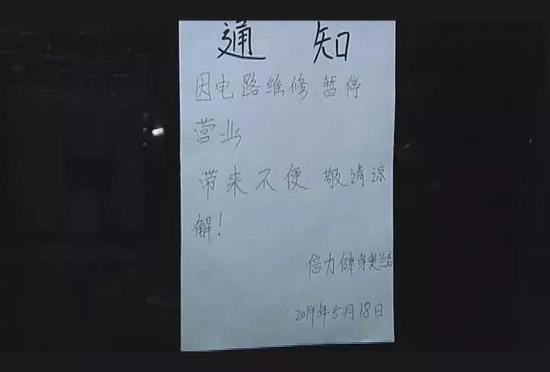 通 知
因电路维修 暂停
营业
带来不便 敬请谅
解!
倍力健身奥兰店
2019年5月18日